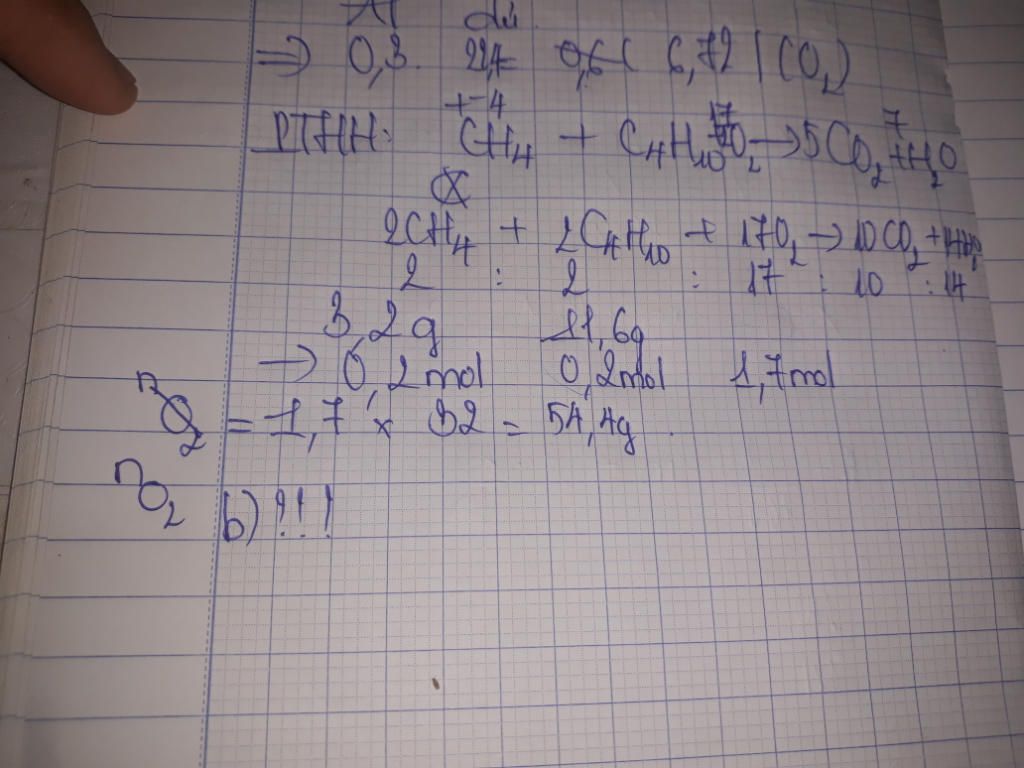 => 0,3. 22,4 = 6,72 l (CO2)
PTHH: CH4 + C4H10 O2 → 5CO2 + 7H2O
2CH4 + 2C4H10 + 17O2 → 10CO2 + 14H2O
2 : 2 : 17 : 10 : 14
3,2g 11,6g
→ 0,2mol 0,2mol 1,7mol
O2 = 1,7 x 32 = 54,4g.
nO2
b) ?!!